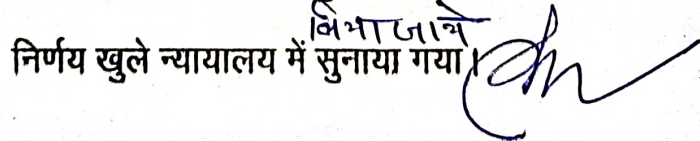 किया जाये
निर्णय खुले न्यायालय में सुनाया गया।